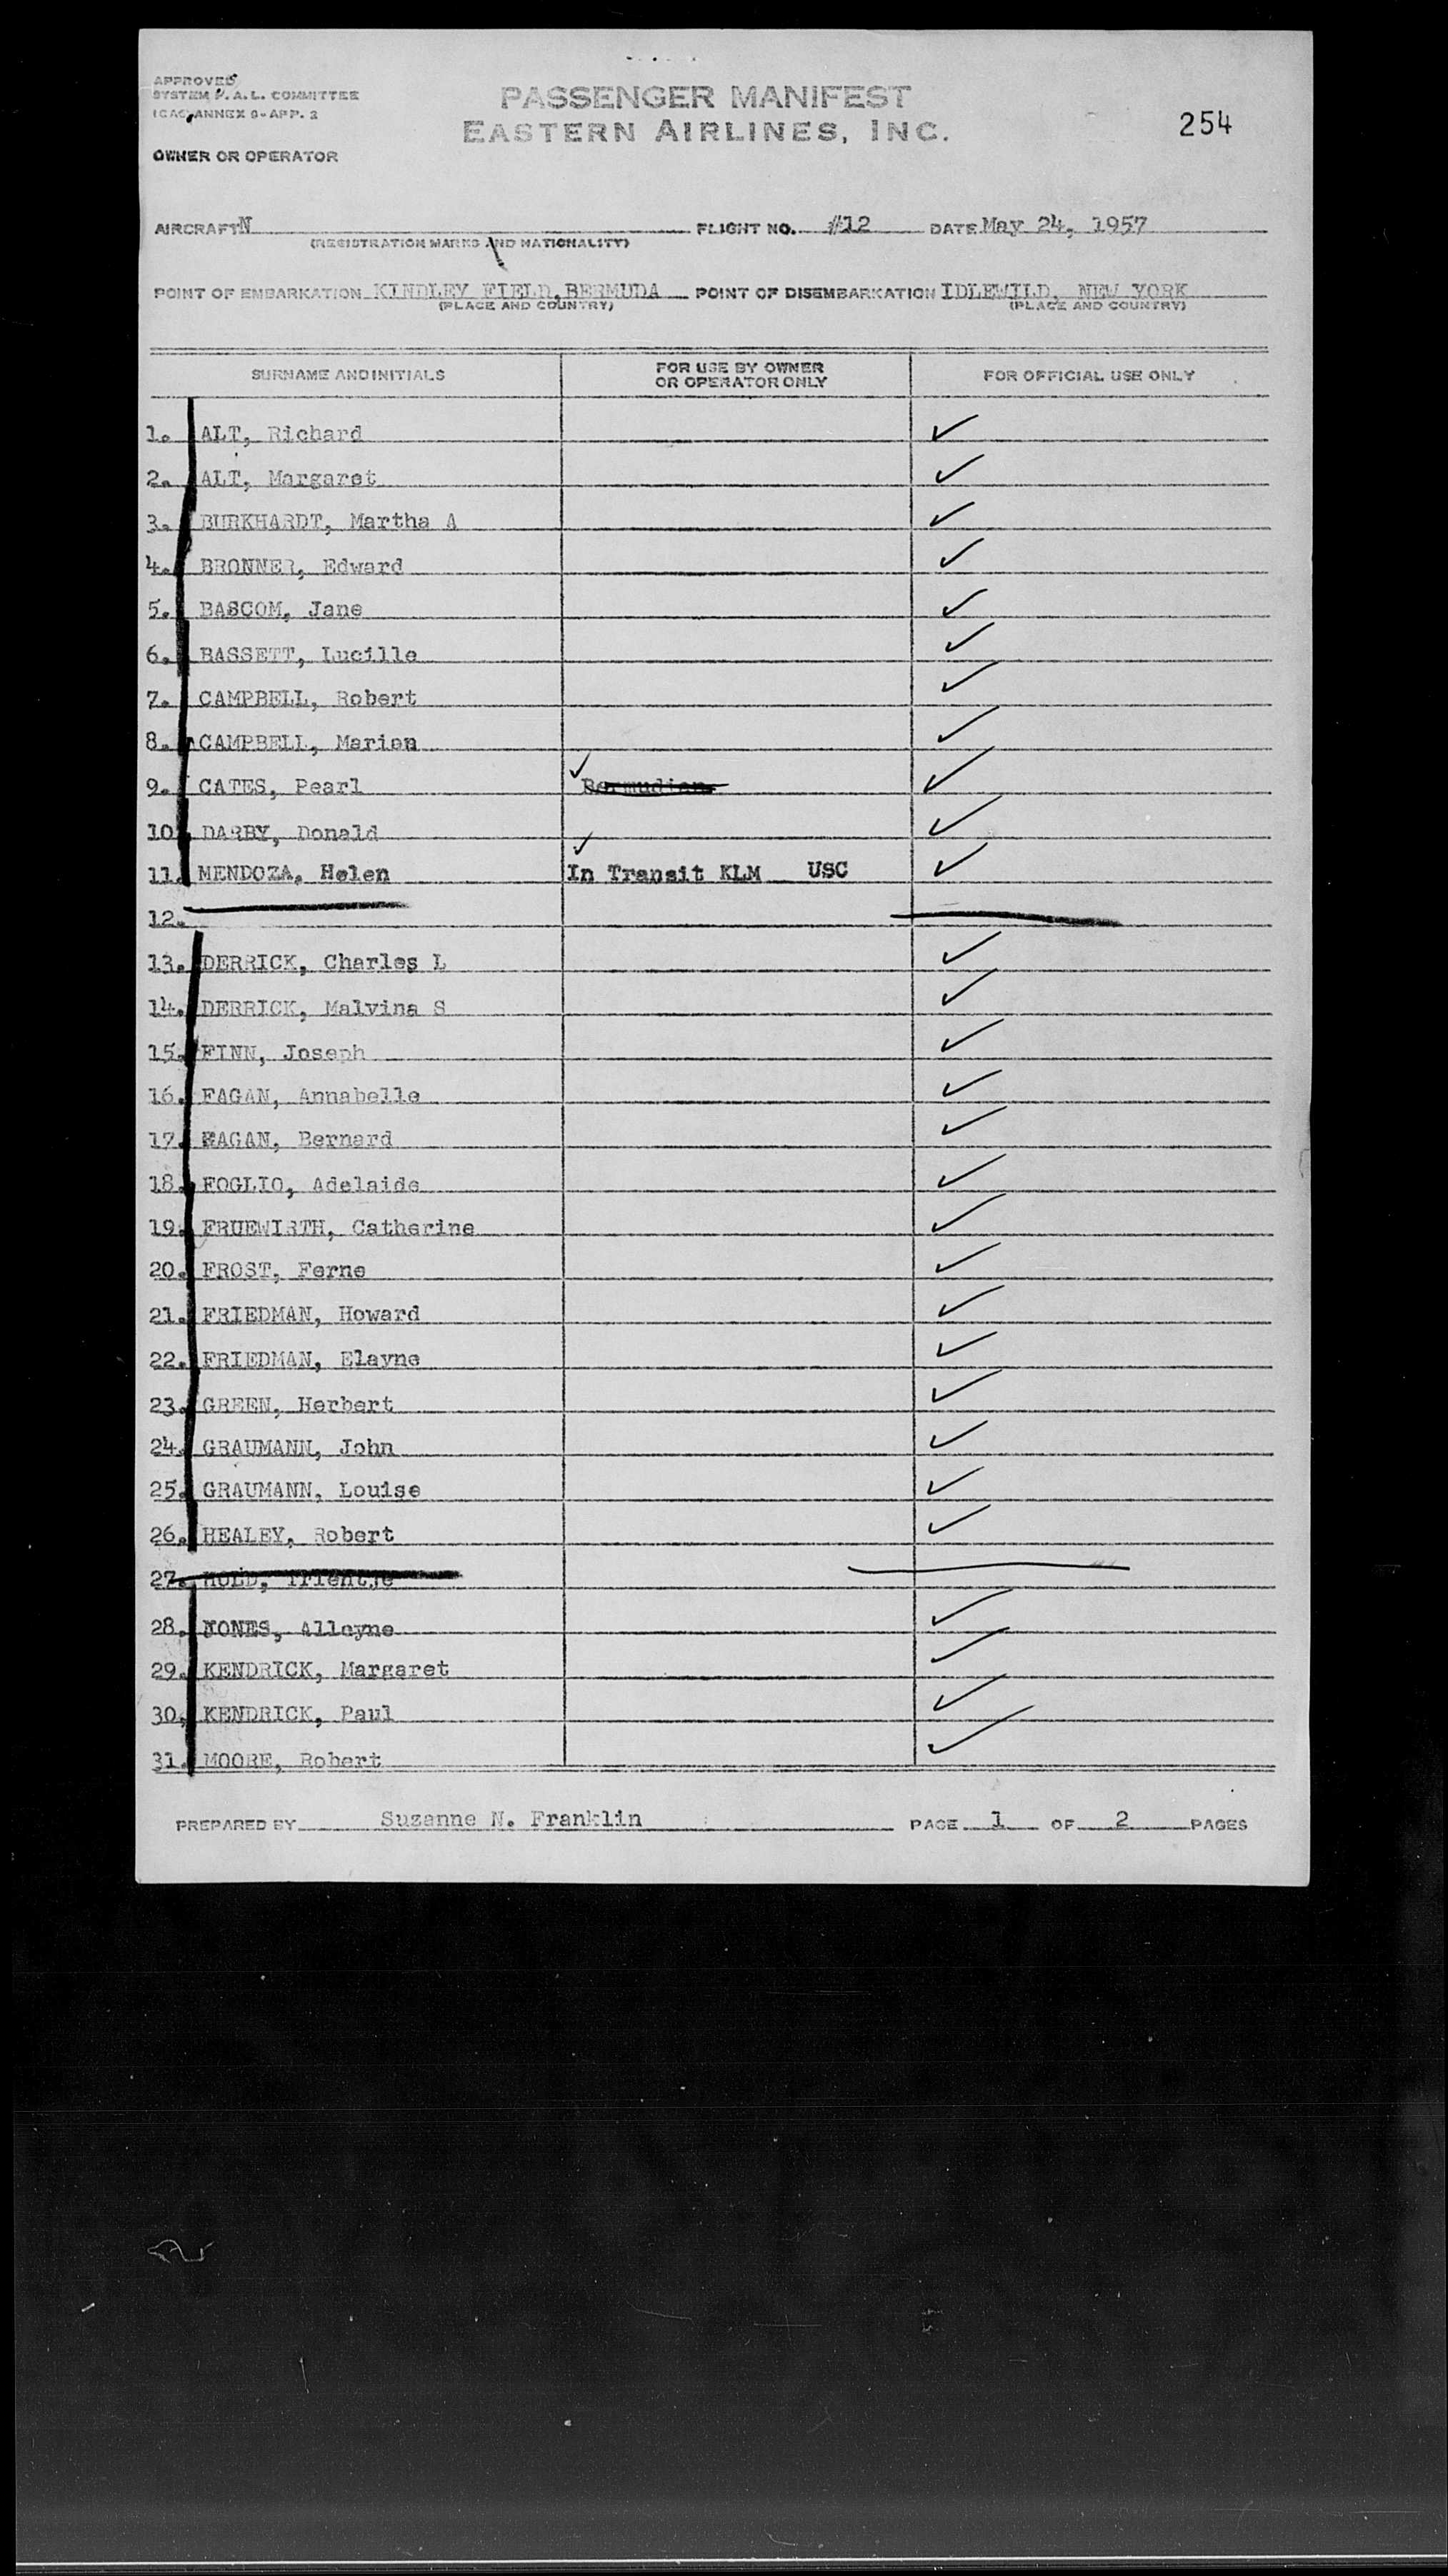 APPROVED
SYSTEM F.A.L. COMMITTEE
ICAO, ANNEX 9-APP. 2
PASSENGER MANIFEST
EASTERN AIRLINES, INC.
254
OWNER OR OPERATOR
AIRCRAFT N FLIGHT NO. #12 DATE May 24, 1957
(REGISTRATION MARKS AND NATIONALITY)
POINT OF EMBARKATION KINDLEY FIELD, BERMUDA POINT OF DISEMBARKATION IDLEWILD, NEW YORK
(PLACE AND COUNTRY) (PLACE AND COUNTRY)
SURNAME AND INITIALS FOR USE BY OWNER OR OPERATOR ONLY FOR OFFICIAL USE ONLY
1. ALT, Richard ✓
2. ALT, Margaret ✓
3. BURKHARDT, Martha A ✓
4. BRONNER, Edward ✓
5. BASCOM, Jane ✓
6. BASSETT, Lucille ✓
7. CAMPBELL, Robert ✓
8. CAMPBELL, Marian ✓
9. CATES, Pearl ✓ Bermudian ✓
10. DARBY, Donald ✓
11. MENDOZA, Helen ✓ In Transit KLM USC ✓
12.
13. DERRICK, Charles L ✓
14. DERRICK, Malvina S ✓
15. FINN, Joseph ✓
16. FAGAN, Annabelle ✓
17. FAGAN, Bernard ✓
18. FOGLIO, Adelaide ✓
19. FRUEWIRTH, Catherine ✓
20. FROST, Ferne ✓
21. FRIEDMAN, Howard ✓
22. FRIEDMAN, Elayne ✓
23. GREEN, Herbert ✓
24. GRAUMANN, John ✓
25. GRAUMANN, Louise ✓
26. HEALEY, Robert ✓
27. Trientje
28. JONES, Alleyne ✓
29. KENDRICK, Margaret ✓
30. KENDRICK, Paul ✓
31. MOORE, Robert ✓
PREPARED BY Suzanne N. Franklin PAGE 1 OF 2 PAGES